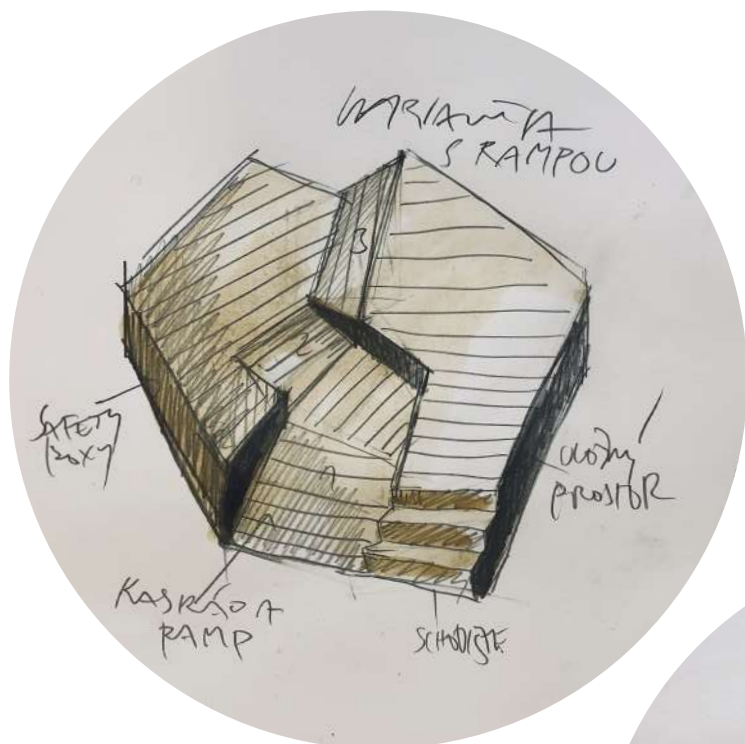 VARIANTA
S RAMPOU
B
2
1
SAFETY
BOXY
ÚLOŽNÝ
PROSTOR
KASKÁDA
RAMP
SCHODIŠTĚ